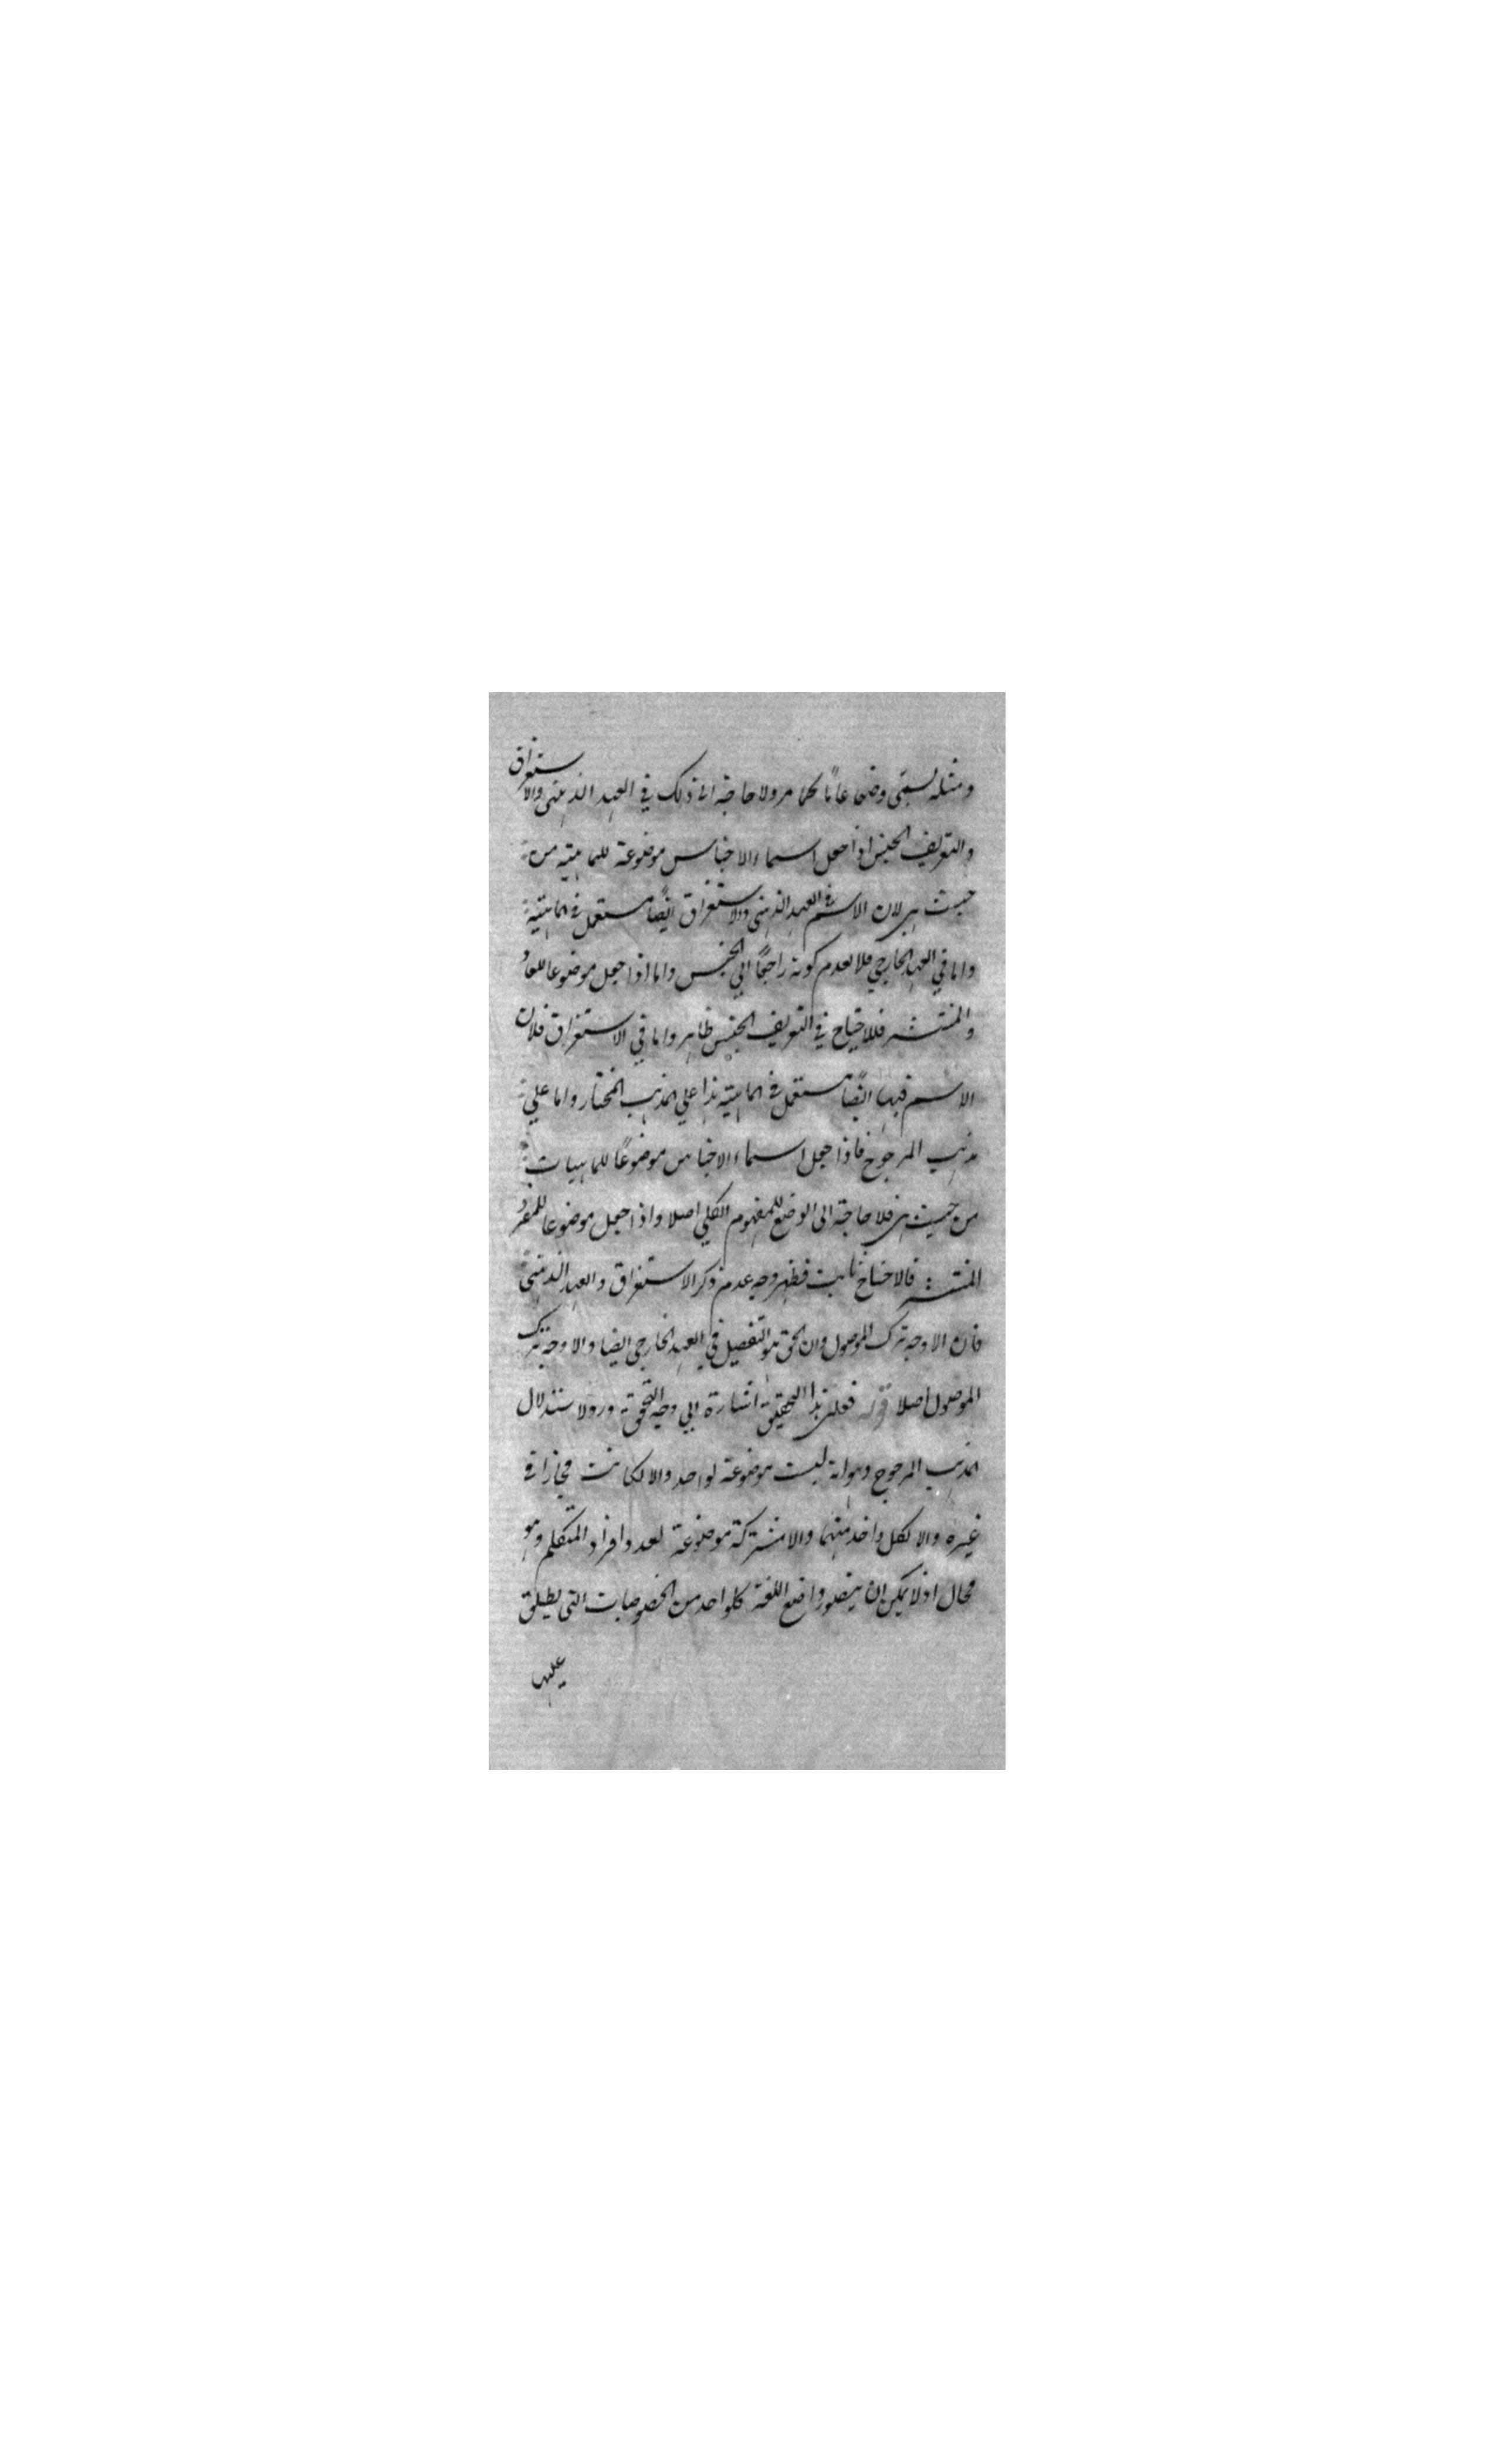 ومثله يسمى وضعا عامًا كما مر ولا حاجة الى ذلك في العهد الذهنى والاستغراق
والتعريف الجنس اذا جعل اسماء الاجناس موضوعة للماهية من
حيث هى لان الاسم فى العهد الذهنى والاستغراق ايضًا مستعمل فى الماهية
واما في العهد الخارجي فلا لعدم كونه راجعًا الي الجنس واما اذا جعل موضوعا للفرد
المنتشر فلا احتياج في التعريف الجنس ظاهر واما في الاستغراق فلان
الاسم فيها ايضًا مستعمل فى الماهية هذا علي المذهب المختار واما علي
مذهب المرجوح فاذا جعل اسماء الاجناس موضوعًا للماهيات
من حيث هى فلا حاجة الى الوضع للمفهوم الكلي اصلا واذا جعل موضوعا للمفرد
المنتشر فالاحتياج ثابت فظهر وجه عدم ذكر الاستغراق والعهد الذهني
فان الاوجه ترك الموصول وان الحق هو التفصيل في العهد الخارجي ايضا والاوجه ترك
الموصول اصلا قوله فعلى هذا التحقيق اشارة الي وجه التحقيق ورد لاستدلال
المذهب المرجوح وهو انه ليست موضوعة لواحد والا لكانت مجازا في
غيره والا لكل واحد منهما والا مشتركة موضوعة لعدد افراد المتكلم وهو
محال اذ لا يمكن ان يتصور واضع اللغة كلواحد من الخصوصيات التى يطلق
عليها